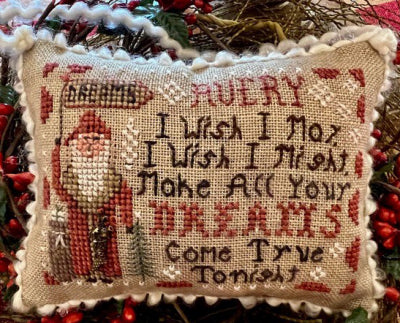 DREAMS
AVERY
I Wish I May,
I Wish I Might,
Make All Your
DREAMS
Come True
Tonight